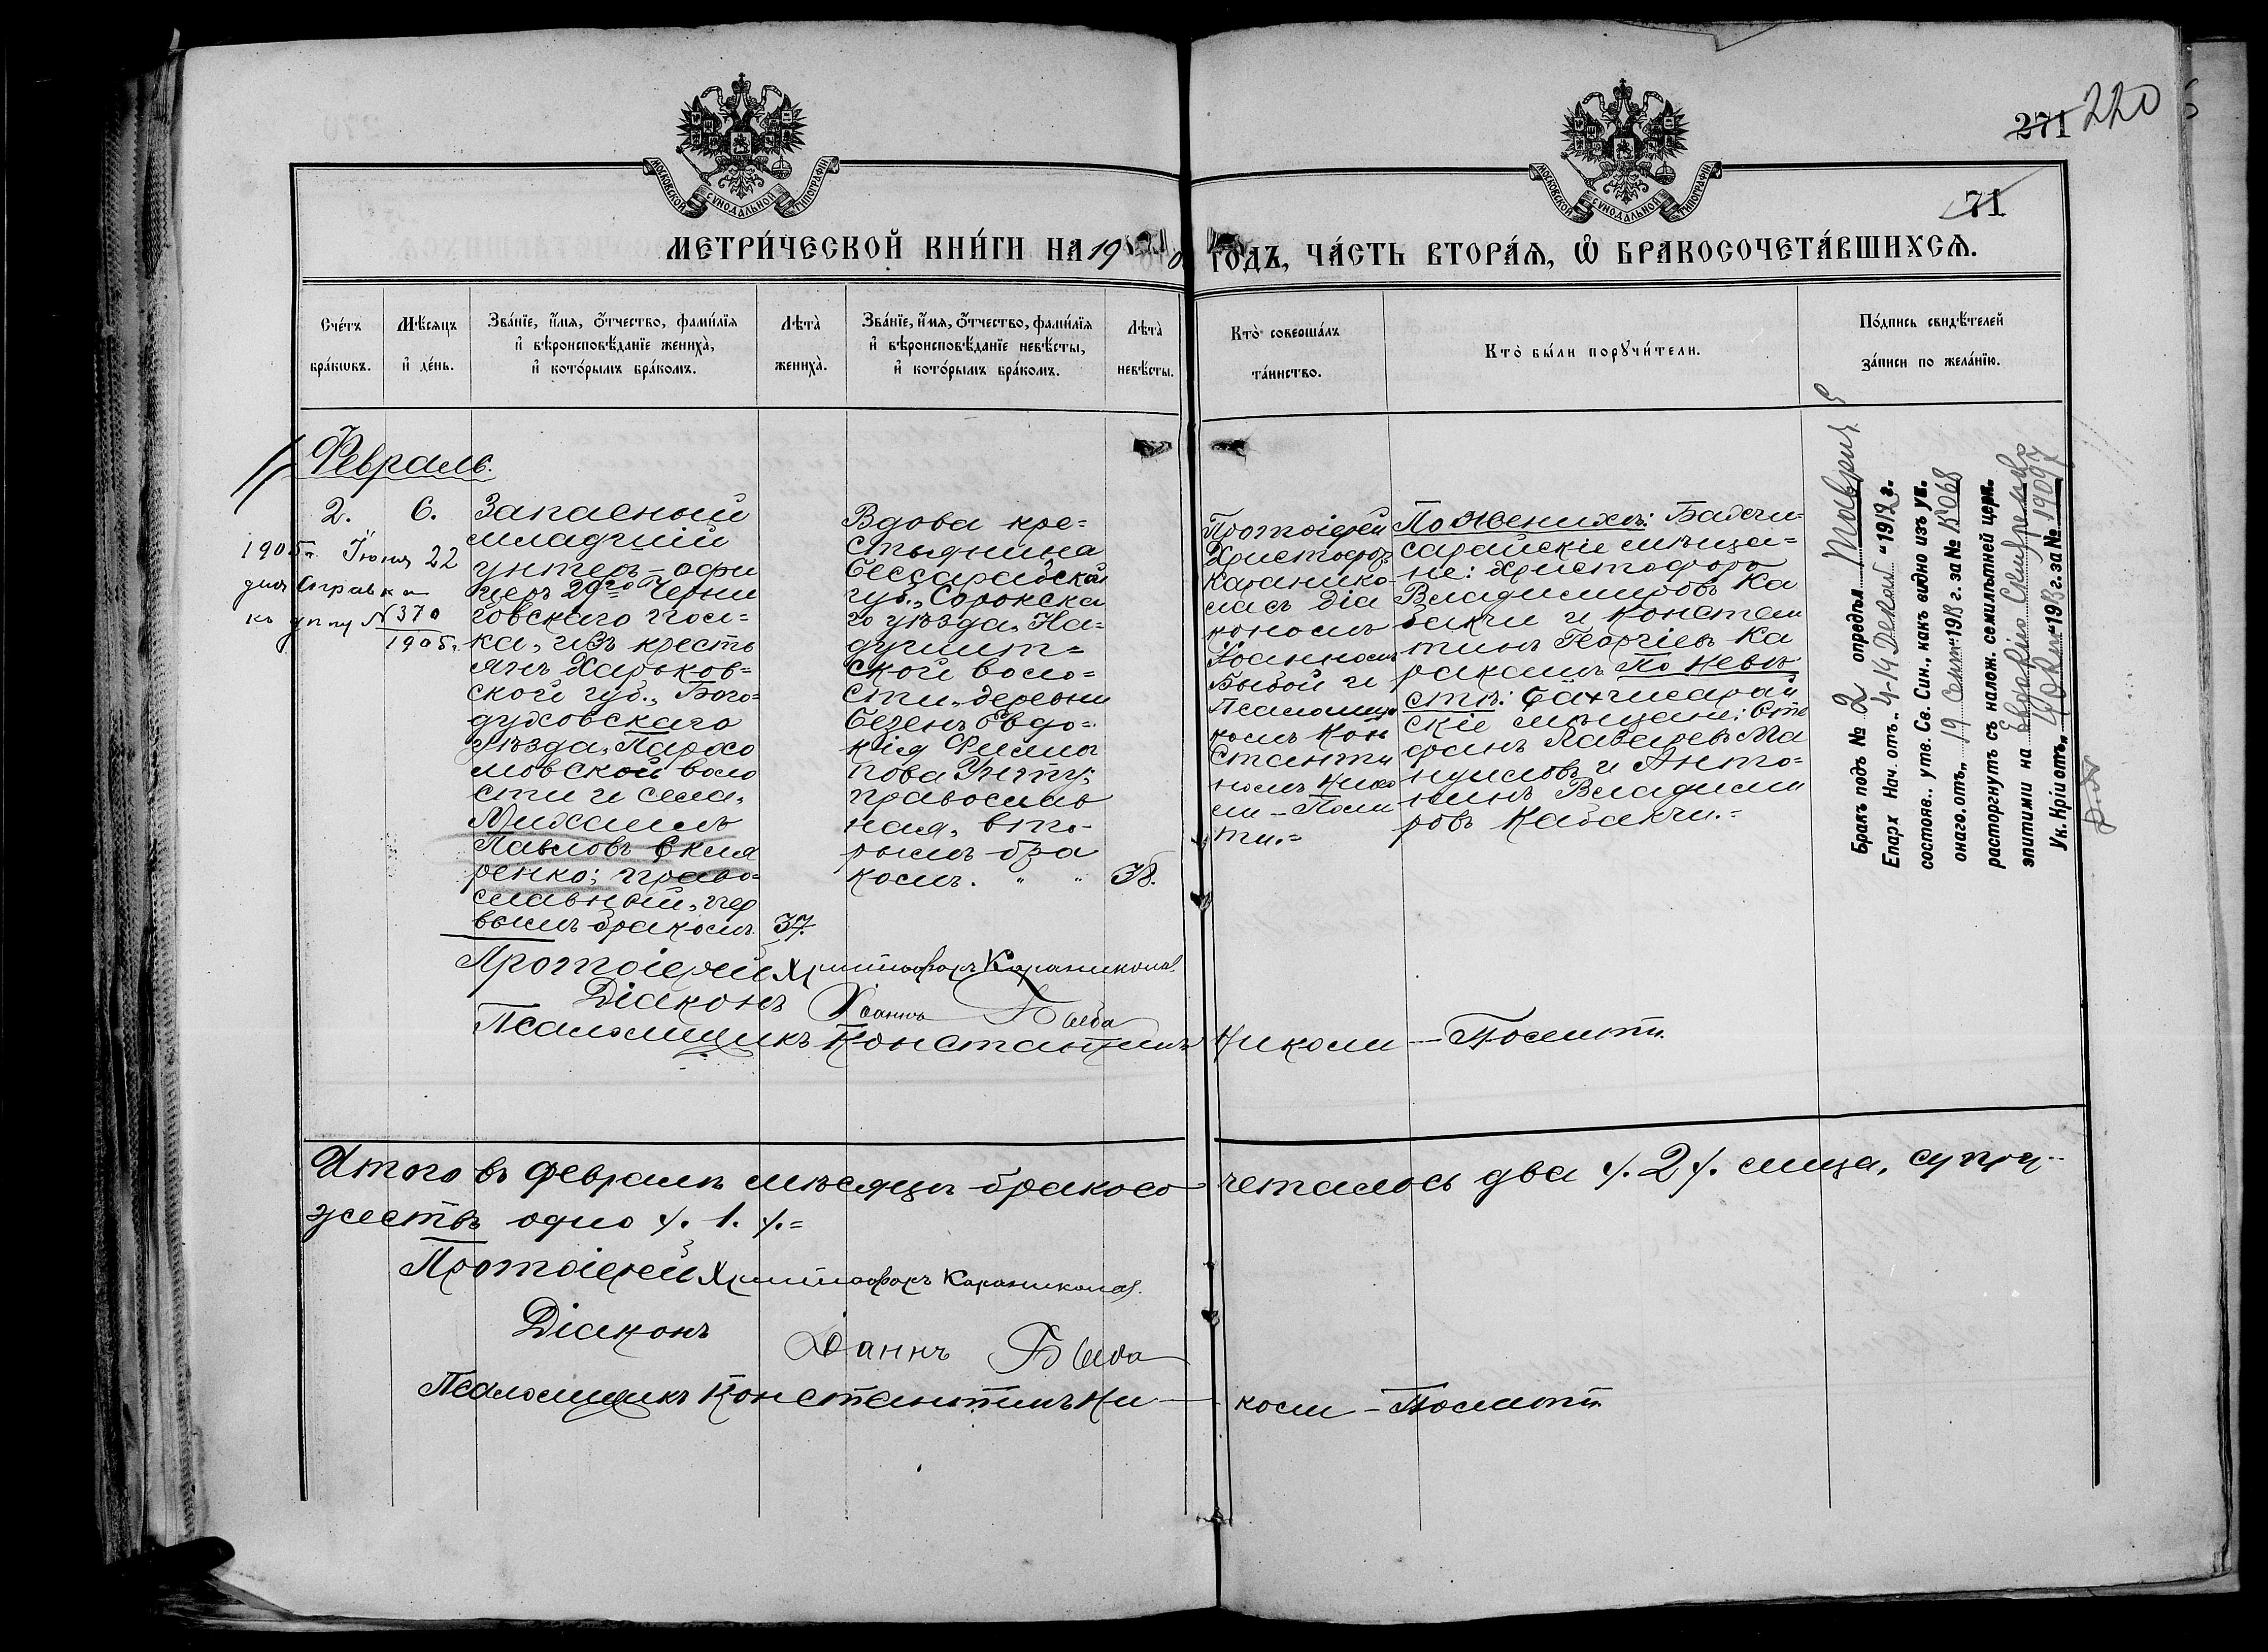 271 220
71
МОСКОВСКОЙ СУНОДАЛЬНОЙ ТИПОГРАФІИ
МОСКОВСКОЙ СУНОДАЛЬНОЙ ТИПОГРАФІИ
МЕТРИ́ЧЕСКОЙ КНИ́ГИ НА 19
ГОДЪ, ЧА́СТЬ ВТОРА́Ѧ, Ѽ БРАКОСОЧЕТА́ВШИХСѦ.
Сче́тъ бра́кѡвъ.
Мѣ́сяцъ и҆ де́нь.
Зва́нїе, и҆́мѧ, ѻ҆́тчество, фами́лїѧ и҆ вѣроисповѣ́данїе жениха̀, и҆ кото́рымъ бра́комъ.
Лѣта̀ жениха̀.
Зва́нїе, и҆́мѧ, ѻ҆́тчество, фами́лїѧ и҆ вѣроисповѣ́данїе невѣ́сты, и҆ кото́рымъ бра́комъ.
Лѣта̀ невѣ́сты.
Кто̀ соверша́лъ та́инство.
Кто̀ бы́ли порꙋчи́тели.
По́дпись свидѣ́телей за́писи по жела́нїю.
Февраль.
2.
6.
1905 г. Іюня 22
дня справка
къ № 370
1905.
Запасный
младшій
унтеръ-офи
церъ 29го Черни
говскаго пол-
ка, изъ кресть
янъ Харьков-
ской губ., Бого-
духовскаго
уѣзда, Пархо
мовской воло
сти и села,
Михаилъ
Павловъ Скля
ренко; право-
славный, пер
вымъ бракомъ.
37.
Вдова кре-
стьянина
Бессарабской
губ., Сорокска
го уѣзда, На-
душит-
ской воло-
сти, деревни
Безенъ Евдо-
кія Филип
пова Унгу;
православ
ная, вто-
рымъ бра
комъ. " "
38.
Протоіерей
Христофоръ
Каранико-
ласъ діа
кономъ
Іоанномъ
Быбой и
Псаломщи
комъ Кон
станти
номъ Нико
ли-Поли
ти.=
По Женихѣ: Бахчи-
сарайскіе мѣща-
не: Христофоръ
Владиміровъ Ка
бакчи и Констан
тинъ Георгіевъ Ка
ракашъ По Невѣ-
стѣ: Бахчисарай
скіе мѣщане: Сте
фанъ Лазаревъ Ма
нуиловъ и Анто-
нинъ Владими
ровъ Кабакчи.=
Бракъ подъ № 2 опредѣл. Таврич.
Епарх Нач. отъ „4-14 Декаб“ 1912 г.
состояв.. утв. Св. Син., какъ видно изъ ук.
онаго, отъ „19 Сент“ 1913 г. за № 15068
расторгнутъ съ налож. семилѣтней церк.
эпитиміи на Евдокію Скляренко
Ук. Кр іи отъ „4 Окт“ 1913 г. за № 19097
Протоіерей Христофоръ Караниколас
Діаконъ Іоаннъ Быба
Псаломщикъ Константинъ Николи-Полити.
Итого въ Февралѣ мѣсяцѣ бракосочеталось два /. 2 /. лица, супру-
жествъ одно /. 1. /.=
Протоіерей Христофоръ Караниколас.
Діаконъ Іоаннъ Быба
Псаломщикъ Константинъ Николи-Полити